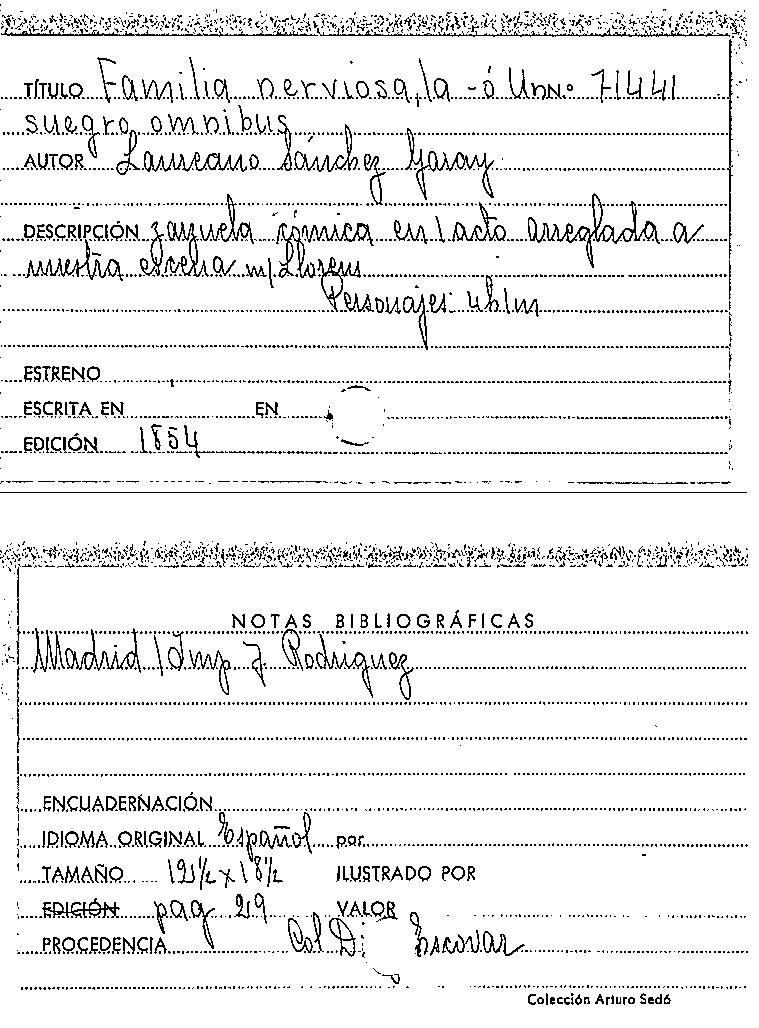 TÍTULO Familia nerviosa, la - ó Un N.º 71441
suegro omnibus
AUTOR Laureano Sánchez Garay
DESCRIPCIÓN zarzuela cómica en 1 acto arreglada a
nuestra escena m/ Llorens
Personajes: 4h 1m
ESTRENO
ESCRITA EN EN
EDICIÓN 1854
NOTAS BIBLIOGRÁFICAS
Madrid / Imp. J. Rodriguez
ENCUADERNACIÓN
IDIOMA ORIGINAL Español por
TAMAÑO X 18½ ILUSTRADO POR
EDICIÓN pag 29 VALOR
PROCEDENCIA Col Escovar
Colección Arturo Sedó